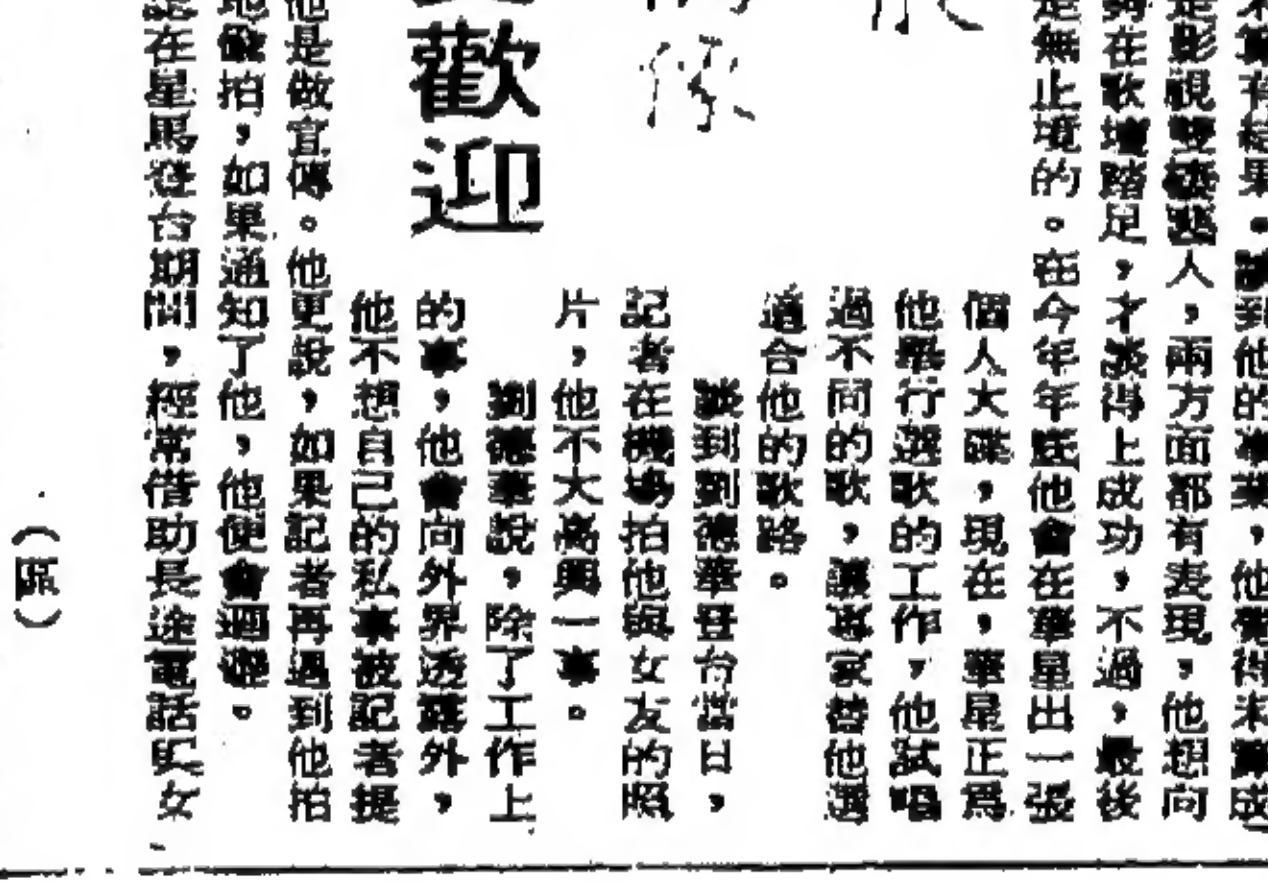 未算有結果。談到他的事業,他覺得未算成
是影視雙棲藝人,兩方面都有表現,他想向
夠在歌壇踏足,才談得上成功,不過,最後
是無止境的。在今年年底他會在華星出一張
個人大碟,現在,華星正為
他舉行選歌的工作,他試唱
過不同的歌,讓專家替他選
適合他的歌路。
談到劉德華登台當日,
記者在機場拍他與女友的照
片,他不大高興一事。
劉德華說,除了工作上
的事,他會向外界透露外,
他不想自己的私事被記者提
歡迎
他是做宣傳。他更說,如果記者再遇到他拍
地偷拍,如果通知了他,他便會迴避。
在星馬登台期間,經常借助長途電話與女
(區)